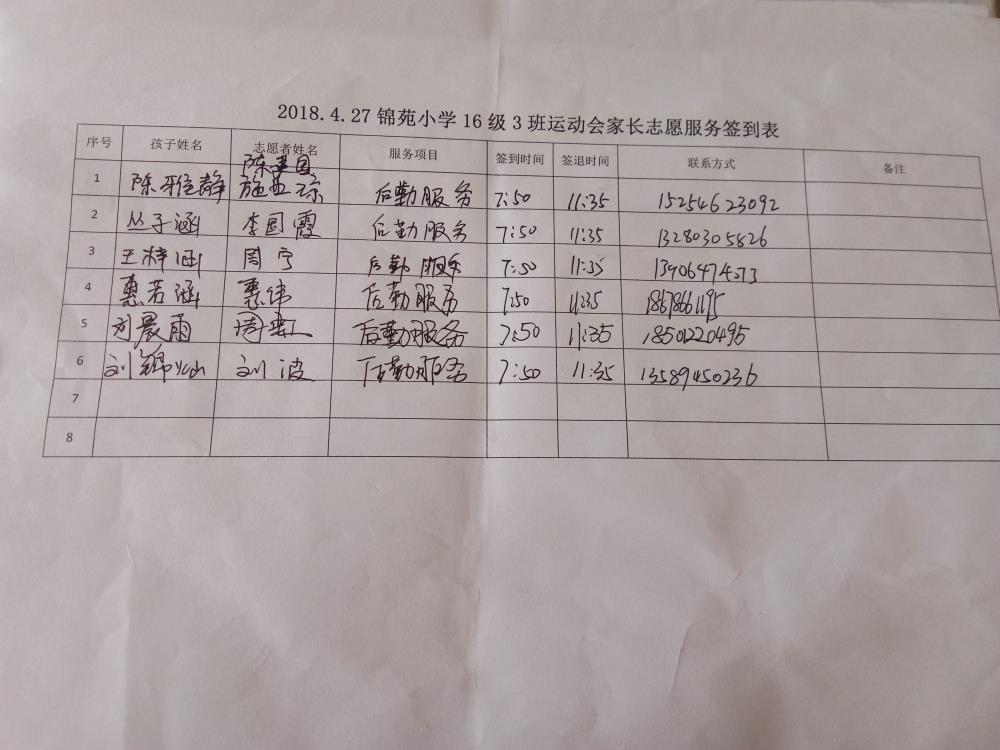 2018.4.27 锦苑小学 16 级 3 班运动会家长志愿服务签到表
序号 孩子姓名 志愿者姓名 服务项目 签到时间 签退时间 联系方式 备注
陈建国
1 陈雅静 施亚琼 后勤服务 7:50 11:35 15254623092
2 丛子涵 李国霞 后勤服务 7:50 11:35 13280305826
3 王梓涵 周宁 后勤服务 7:50 11:35
4 惠若涵 惠伟 后勤服务 7:50 11:35 18678661195
5 刘晨雨 周 后勤服务 7:50 11:35 18501220495
6 刘锦灿 刘波 后勤服务 7:50 11:35 13589450236
7
8